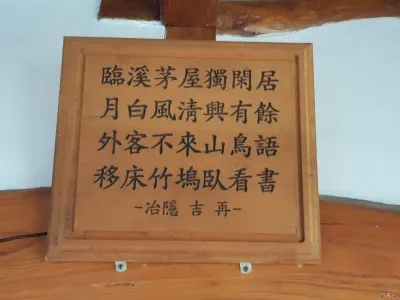 臨溪茅屋獨閑居
月白風淸興有餘
外客不來山鳥語
移床竹塢臥看書
-冶隱 吉 再-